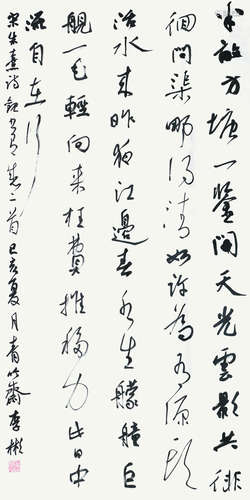 半畝方塘一鑒開天光雲影共徘
徊問渠哪得清如許為有源頭
活水來昨夜江邊春水生艨艟巨
艦一毛輕向來枉費推移力此日中
流自在行
宋朱熹詩觀書有感二首己亥夏月青竹齋李彬